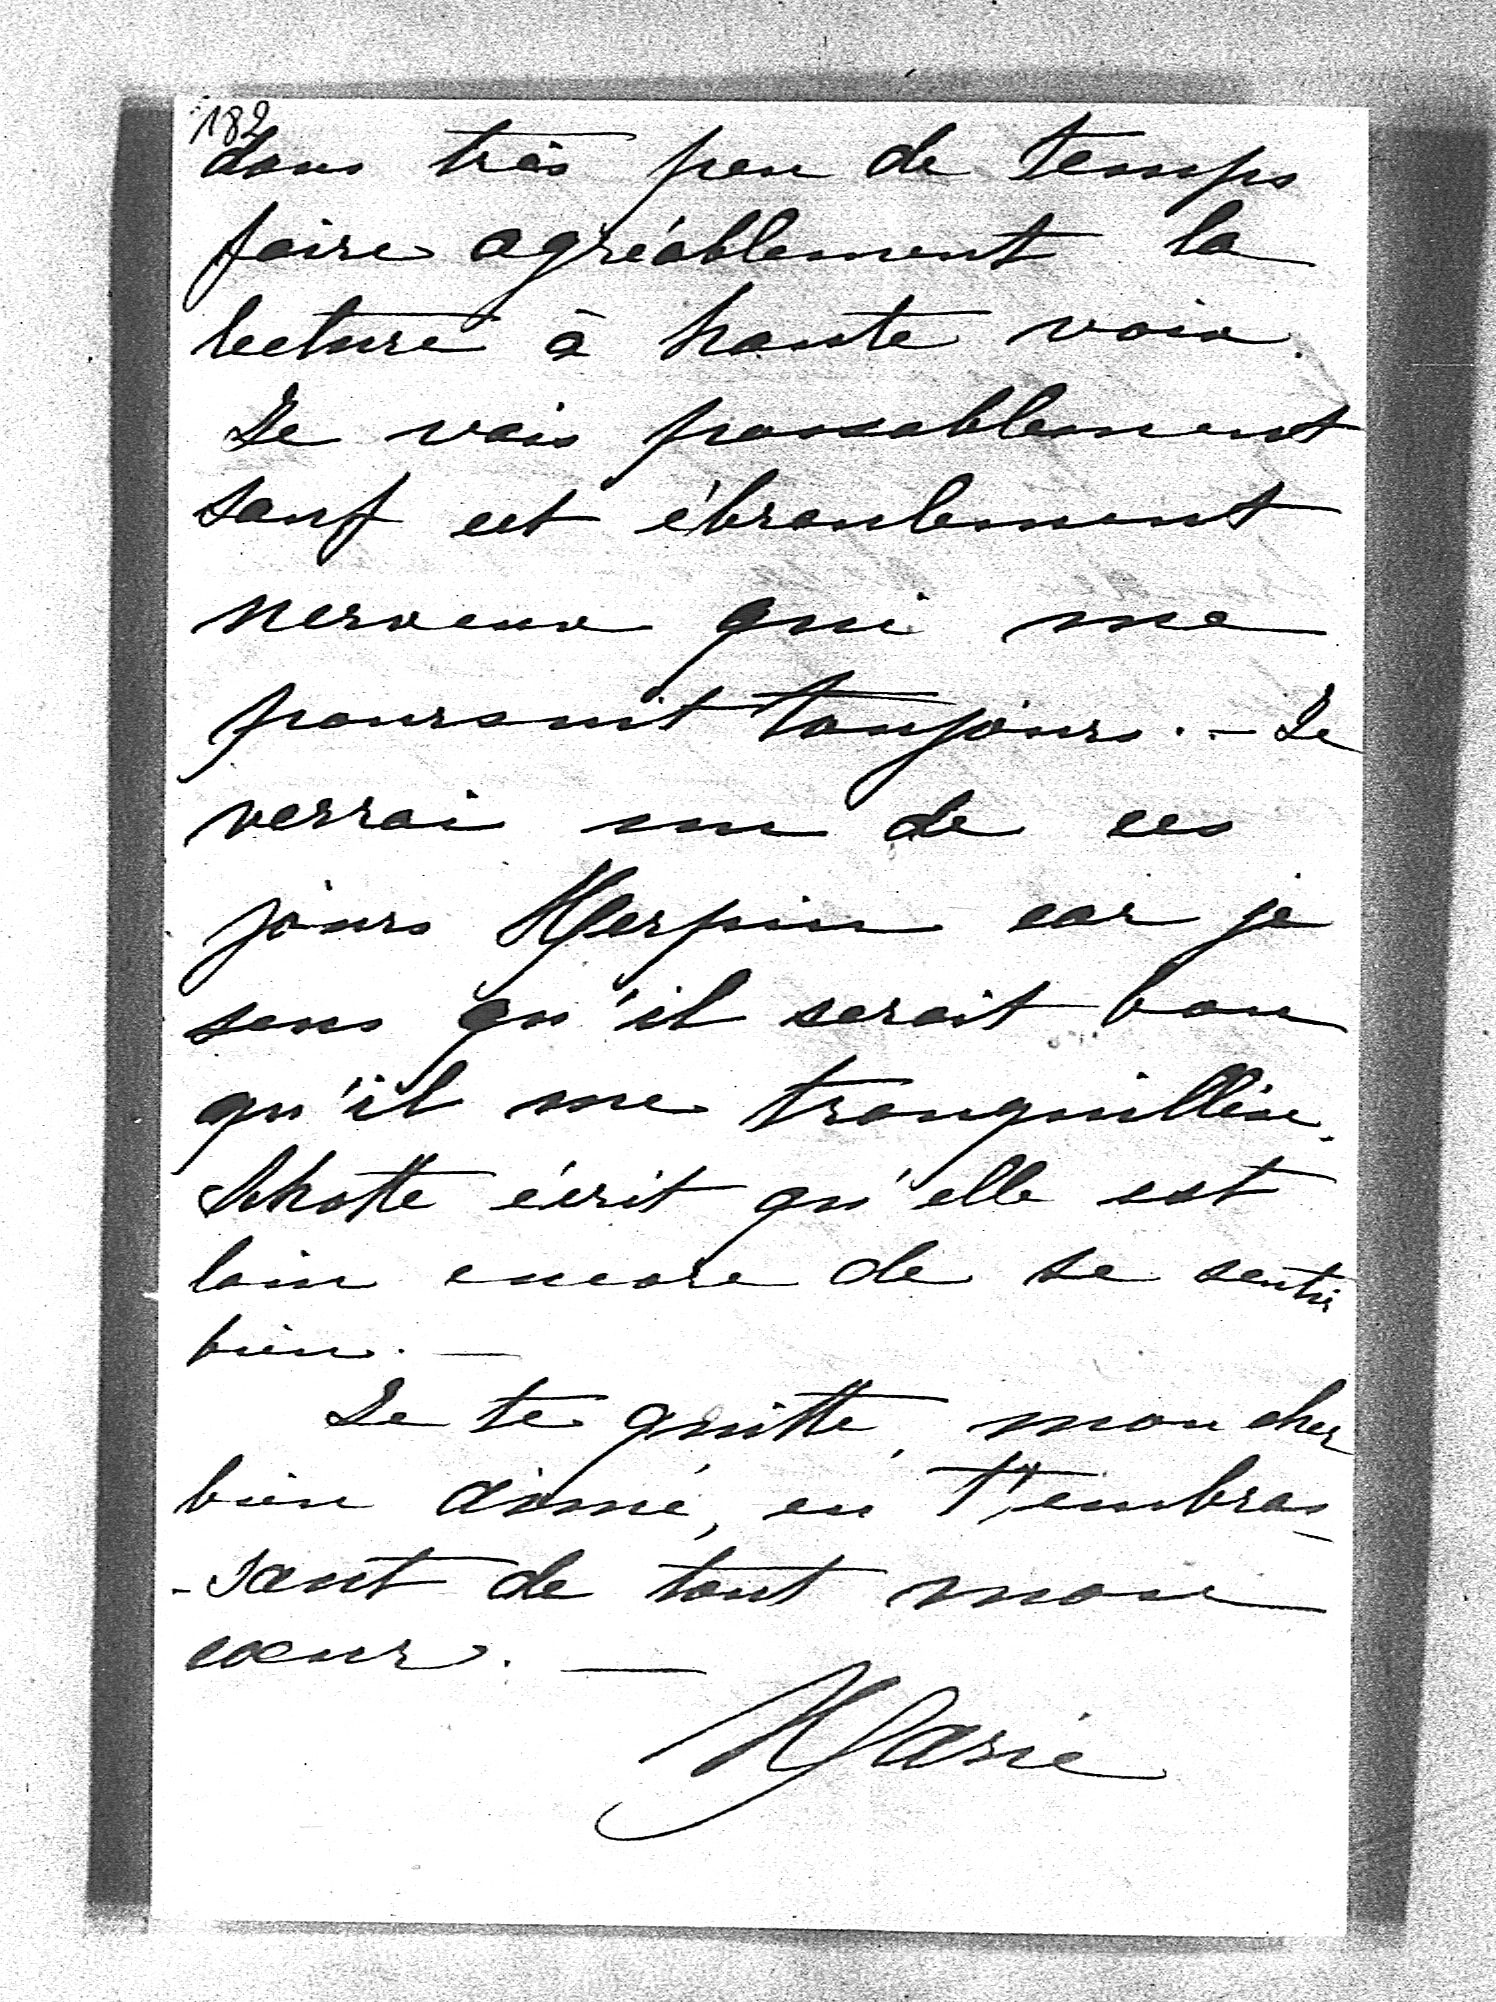 182
dans très peu de temps
faire agréablement la
lecture à haute voix.
Je vais passablement
sauf cet ébranlement
nerveux qui me
poursuit toujours. - Je
verrai un de ces
jours Herpin car je
sens qu'il serait bon
qu'il me tranquillise.
écrit qu'elle est
loin encore de se sentir
bien. —
Je te quitte, mon cher
bien aimé, en t'embras-
-sant de tout mon
cœur. —
Marie